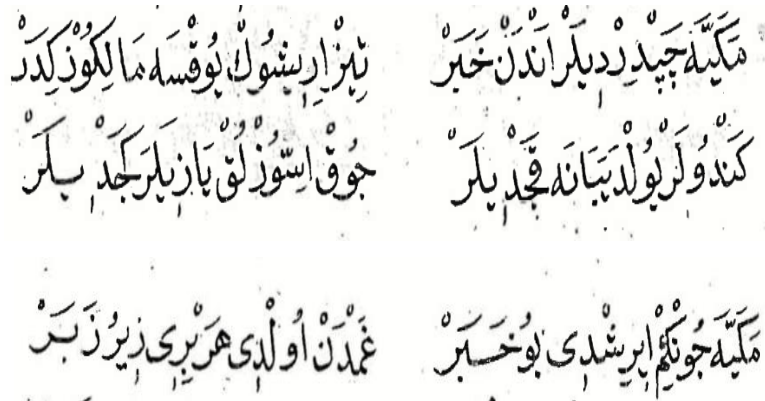 مَكَيَّه چَپِدِرْدِيلَرْ اَنْدَنْ خَبَرْ تِيزْ اِرِيشُوكْ يُوقْسَه مَالِكُوزْ كِدَرْ
كَنْدُولَرْ يُولْدَ يَبَانَه قَچْدِيلَرْ چُوقْ اِسّوُزْلُقْ يَازِيلَرْ كَچْدِيلَرْ
مَكَيَّه چُونْكِمْ اِيرِشْدِى بُو خَبَرْ غَمْدَنْ اُولْدِى هَرْبِرِى زِيرُ زَبَرْ